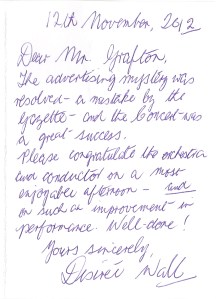 12th November, 2012
Dear Mr. Grafton,
The advertising mystery was
resolved - a mistake by the
Gazette - and the Concert was
a great success.
Please congratulate the orchestra
and conductor on a most
enjoyable afternoon - and
on such an improvement in
performance. Well-done!
Yours sincerely,
Desireé Wall